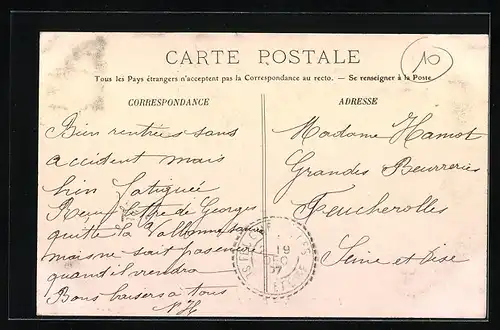 CARTE POSTALE
10
Tous les Pays étrangers n'acceptent pas la Correspondance au recto. — Se renseigner à la Poste
CORRESPONDANCE
Bien rentrées sans
accident mais
bien fatiguée
Reçu lettre de Georges
quitte la Valbonne
mais ne sait pas encore
quand il viendra
Bons baisers à tous
ADRESSE
Madame Hamot
Grandes Beurreries
Feucherolles
Seine et Oise
19
DEC
07